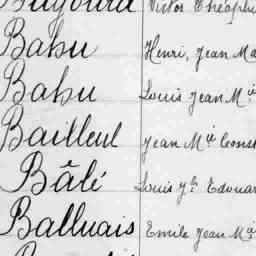 Victor Théophi
Bahu Henri, Jean Ma
Bahu Louis Jean Mie
Bailleul Jean Mie Const
Bâlé Louis Jh Edouar
Balluais Emile Jean Mie